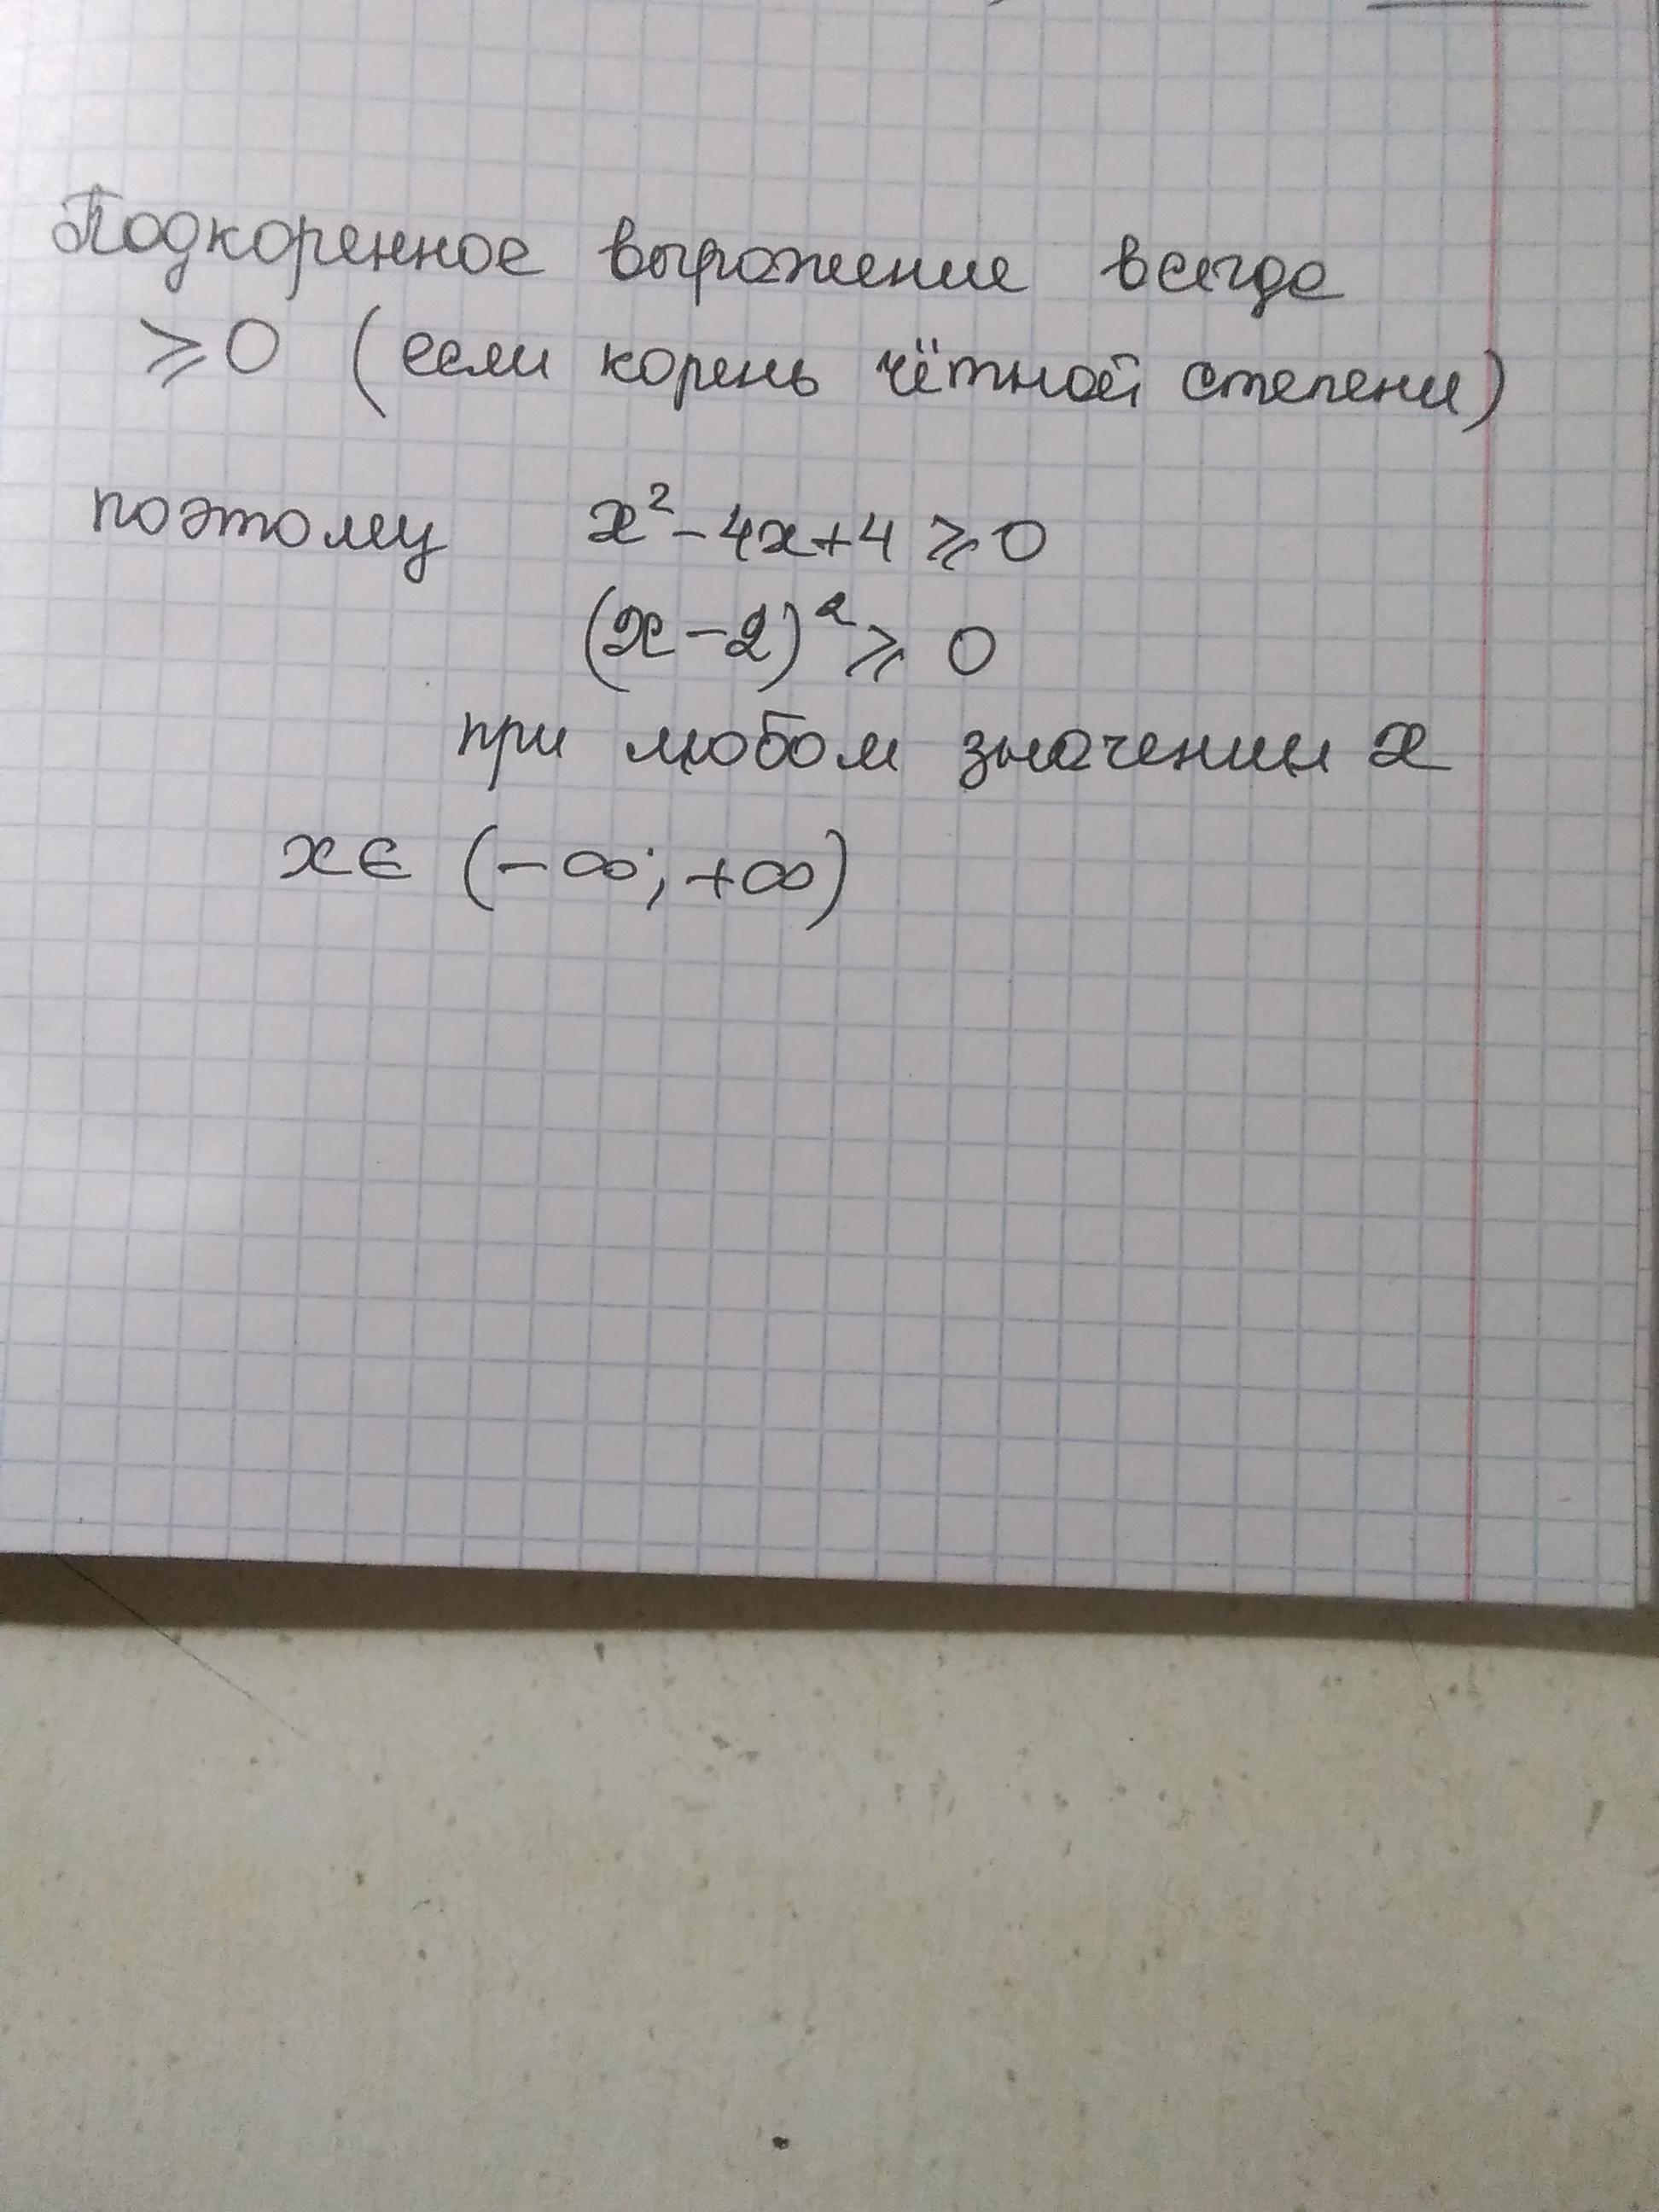 Подкоренное выражение всегда
⩾0 (если корень чётной степени)
поэтому x²-4x+4⩾0
(x-2)²⩾0
при любом значении x
x∈ (-∞; +∞)